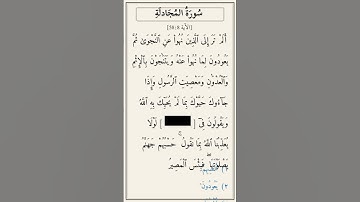 سُورَةُ المُجَادلَةِ
[الآية 58:8]
أَلَمْ تَرَ إِلَى ٱلَّذِينَ نُهُوا۟ عَنِ ٱلنَّجْوَىٰ ثُمَّ
يَعُودُونَ لِمَا نُهُوا۟ عَنْهُ وَيَتَنَـٰجَوْنَ بِٱلْإِثْمِ
وَٱلْعُدْوَٰنِ وَمَعْصِيَتِ ٱلرَّسُولِ وَإِذَا
جَآءُوكَ حَيَّوْكَ بِمَا لَمْ يُحَيِّكَ بِهِ ٱللَّهُ
وَيَقُولُونَ فِىٓ [ ] لَوْلَا
يُعَذِّبُنَا ٱللَّهُ بِمَا نَقُولُ ۚ حَسْبُهُمْ جَهَنَّمُ
يَصْلَوْنَهَا ۖ فَبِئْسَ ٱلْمَصِيرُ
٢) يَعُودُونَ